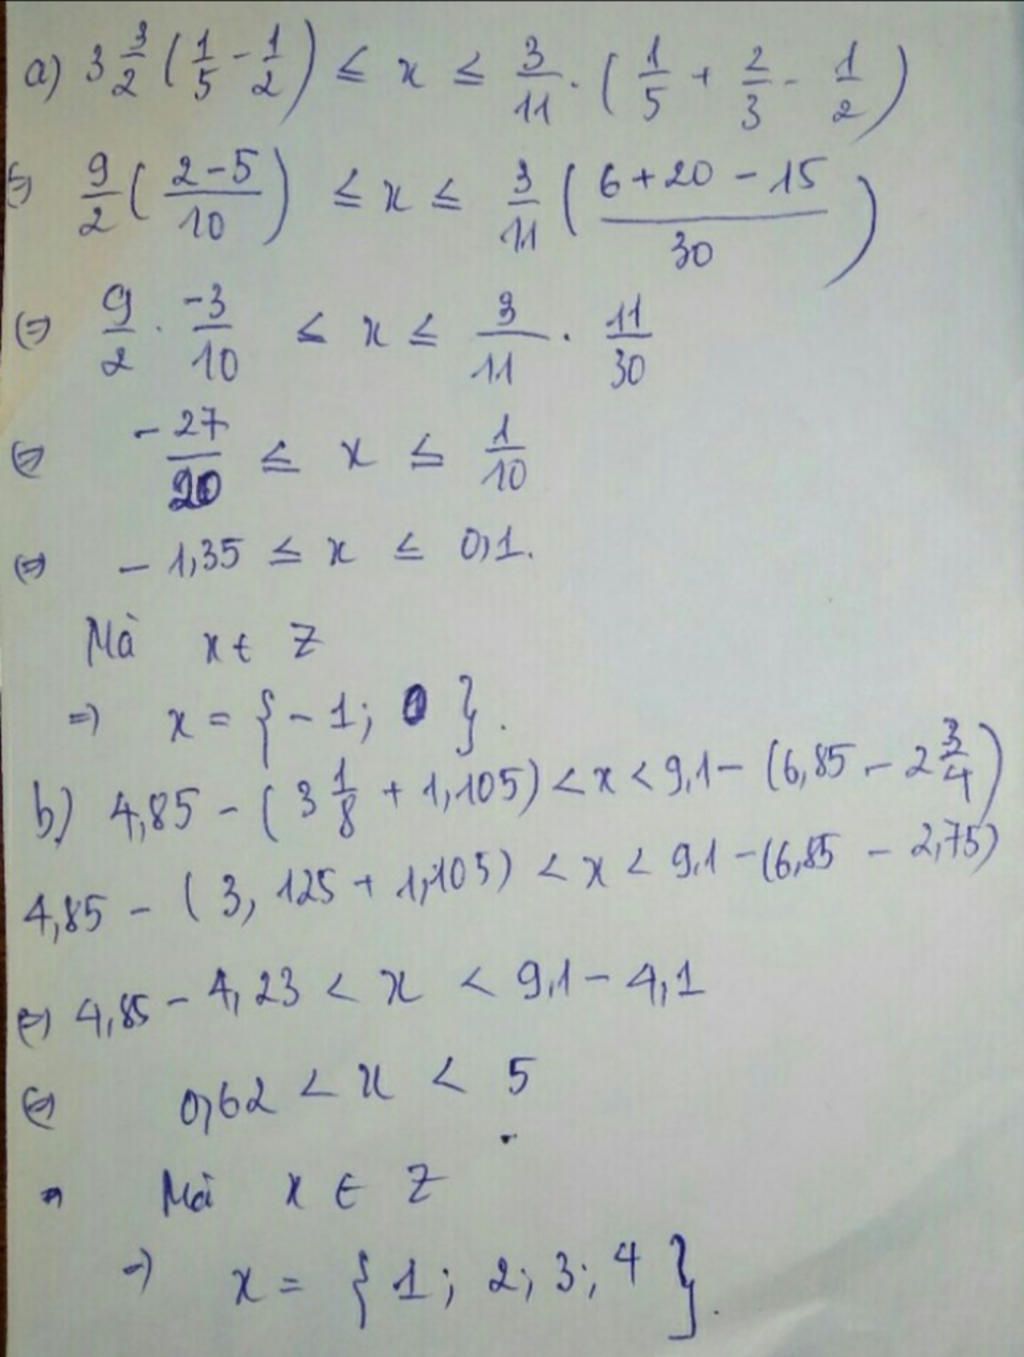 a) 3 3/2 (1/5 - 1/2) ≤ x ≤ 3/11 . (1/5 + 2/3 - 1/2)
⇔ 9/2 ( (2-5)/10 ) ≤ x ≤ 3/11 ( (6+20-15)/30 )
⇔ 9/2 . -3/10 ≤ x ≤ 3/11 . 11/30
⇔ -27/20 ≤ x ≤ 1/10
⇔ -1,35 ≤ x ≤ 0,1.
Mà x ∈ Z
⇒ x = {-1; 0}.
b) 4,85 - (3 1/8 + 1,105) < x < 9,1 - (6,85 - 2 3/4)
4,85 - (3,125 + 1,105) < x < 9,1 - (6,85 - 2,75)
⇔ 4,85 - 4,23 < x < 9,1 - 4,1
⇔ 0,62 < x < 5
Mà x ∈ Z
⇒ x = {1; 2; 3; 4}.